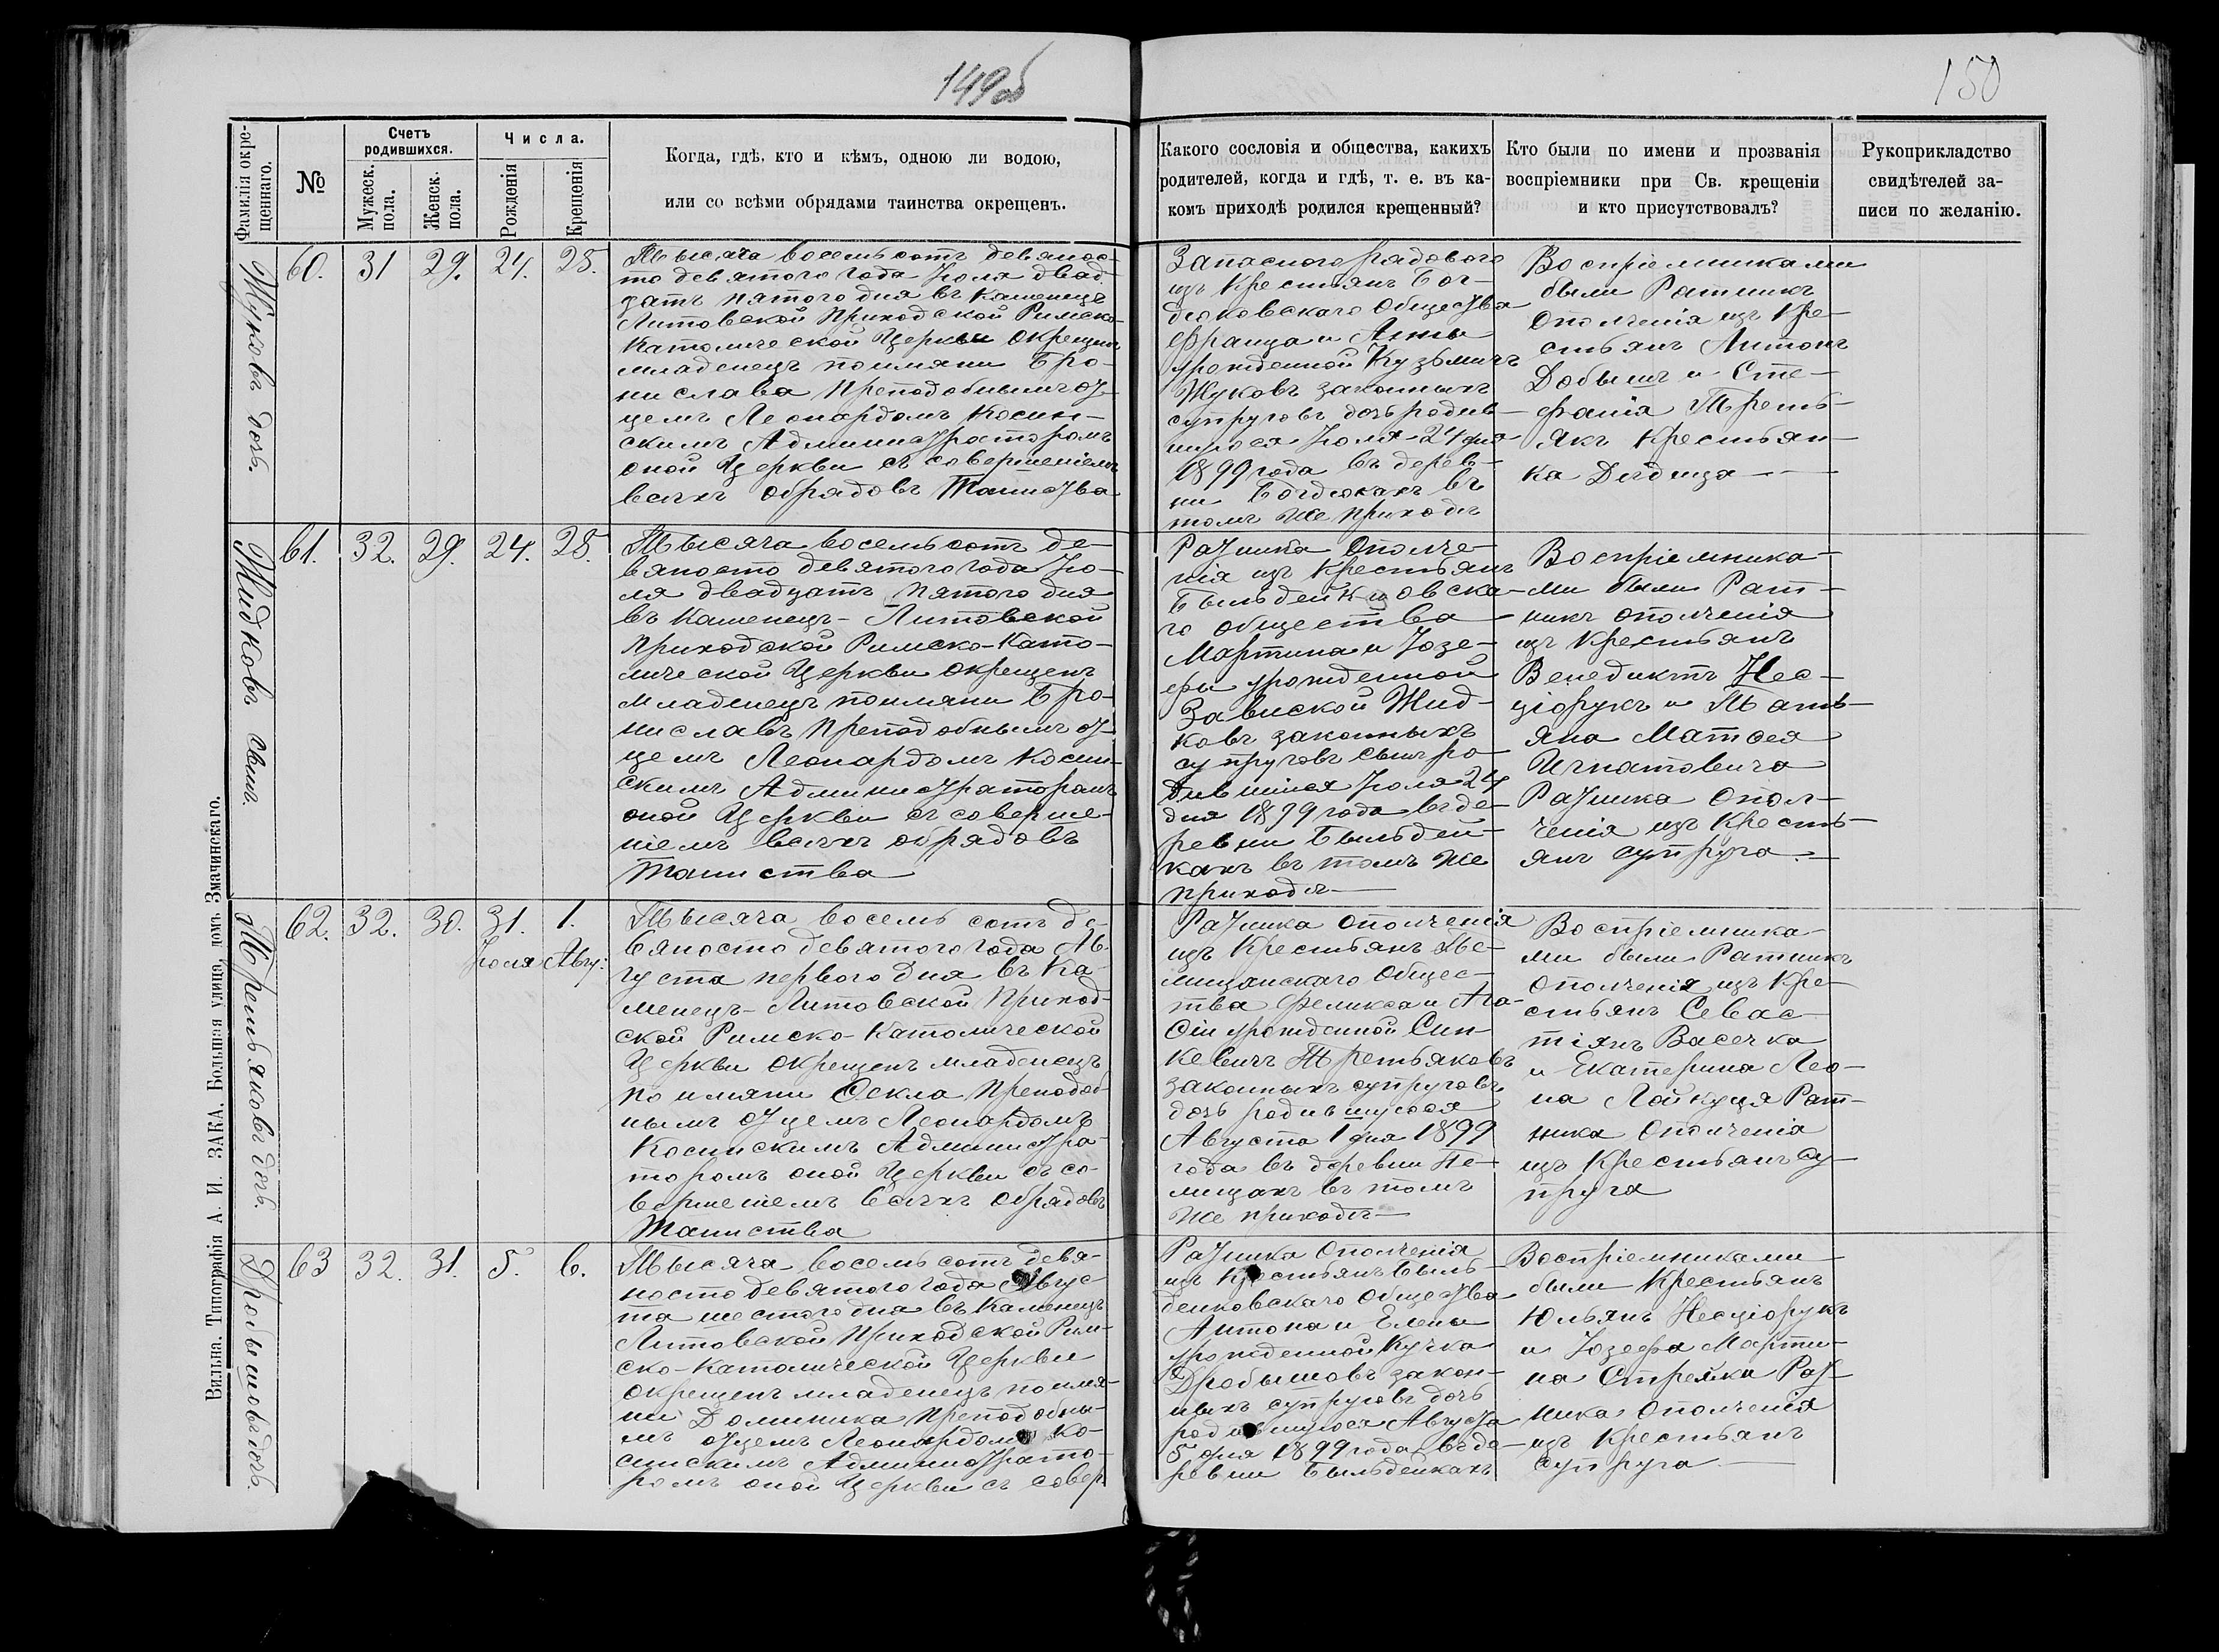 149об
150
Фамилія окре-
щеннаго.
№
Счетъ
родившихся.
Мужеск.
пола.
Женск.
пола.
Числа.
Рожденія
Крещенія
Когда, гдѣ, кто и кѣмъ, одною ли водою,
или со всѣми обрядами таинства окрещенъ.
Какого сословія и общества, какихъ
родителей, когда и гдѣ, т. е. въ ка-
комъ приходѣ родился крещенный?
Кто были по имени и прозванія
воспріемники при Св. крещеніи
и кто присутствовалъ?
Рукоприкладство
свидѣтелей за-
писи по желанію.
Жуковъ дочь.
60. 31 29. 24. 25.
Тысяча восемьсотъ девянос-
то девятого года Іюля двад
цать пятого дня въ Каменецъ
Литовской Приходской Римско-
Католической Церкви окрещенъ
младенецъ поимяни Бро-
нислава Преподобнымъ От-
цемъ Леонардомъ Косин-
скимъ Администраторомъ
оной Церкви съ совершеніемъ
всѣхъ обрядовъ Таинства
Запасного рядового
изъ Крестьянъ Бог-
дюковскаго Общества
Франца и Анны
урожденной Кузьмичъ
Жуковъ законныхъ
супруговъ дочь родив-
шуюся Іюля 24 дня
1899 года въ дерев-
ни Богдюкахъ въ
томъ же приходѣ
Воспріемниками
были Ратникъ
Ополченія изъ Кре-
стьянъ Антонъ
Добышъ и Сте-
фанія Треть-
якъ Крестьян-
ка Дѣвица
Жидковъ сынъ.
61. 32. 29. 24. 25
Тысяча восемьсотъ де-
вяносто девятого года Ію-
ля двадцать пятого дня
въ Каменецъ-Литовской
Приходской Римско-Като-
лической Церкви окрещенъ
младенецъ поимяни Бро-
ниславъ Преподобнымъ От-
цемъ Леонардомъ Косин-
скимъ Администраторомъ
оной Церкви съ соверше-
ніемъ всѣхъ обрядовъ
Таинства
Ратника Ополче-
нія изъ Крестьянъ
Быльдейковска-
го общества
Мартина и Іозе-
фы урожденной
Завиской Жид-
ковъ законныхъ
супруговъ сынъ ро-
дившійся Іюля 24
дня 1899 года въ де-
ревни Быльдей-
кахъ въ томъ же
приходѣ
Воспріемника-
ми были Рат-
никъ ополченія
изъ Крестьянъ
Венедиктъ Нес-
ціорукъ и Тать-
яна Матѳея
Игнатовича
Ратника Опол-
ченія изъ Кресть-
янъ супруга
Третьяковъ дочь.
62. 32. 30. 31. 1.
Іюля Авгу:
Тысяча восемь сотъ де-
вяносто девятого года Ав-
густа первого дня въ Ка-
менецъ-Литовской Приход-
ской Римско-Католической
Церкви окрещенъ младенецъ
по имяни Ѳекла Преподоб
нымъ Отцемъ Леонардомъ
Косинскимъ Администра-
торомъ оной Церкви съ со-
вершеніемъ всѣхъ обрядовъ
Таинства
Ратника ополченія
изъ Крестьянъ Пе-
лищанскаго Общес-
тва Феликса и Ага-
ѳіи урожденной Син-
кевичъ Третьяковъ
законныхъ супруговъ
дочь родившуюся
Августа 1 дня 1899
года въ деревни Пе-
лищахъ въ томъ
же приходѣ
Воспріемника-
ми были Ратникъ
Ополченія изъ Кре-
стьянъ Севас-
тіянъ Васечка
и Екатерина Лео-
на Лойкуця Рат-
ника Ополченія
изъ Крестьянъ Су-
пруга
Дробышовъ дочь.
63 32. 31. 5. 6.
Тысяча восемь сотъ девя-
носто девятого года Авгус-
та шестого дня въ Каменецъ
Литовской Приходской Рим-
ско-Католической Церкви
окрещенъ младенецъ по имя-
ни Доминика Преподобны-
мъ Отцемъ Леонардомъ Ко-
синскимъ Администрато-
ромъ оной Церкви съ совер
Ратника Ополченія
изъ Крестьянъ Быль-
дейковскаго Общества
Антона и Елены
урожденной Кучка
Дробышовъ закон-
ныхъ супруговъ дочь
родившуюся Августа
5 дня 1899 года въ де-
ревни Быльдейкахъ
Воспріемниками
были Крестьянъ
Юльянъ Несціорукъ
и Іозефа Марти-
на Стрейки Рат-
ника Ополченія
изъ Крестьянъ
супруга
Вильна. Типографія А. И. ЗАКА. Большая улица, домъ Змачинскаго.